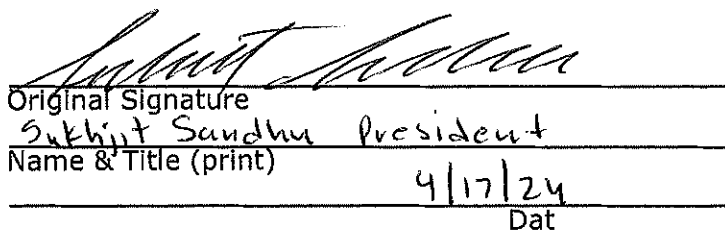 Original Signature
Sukhjit Sandhu President
Name & Title (print)
4/17/24
Dat